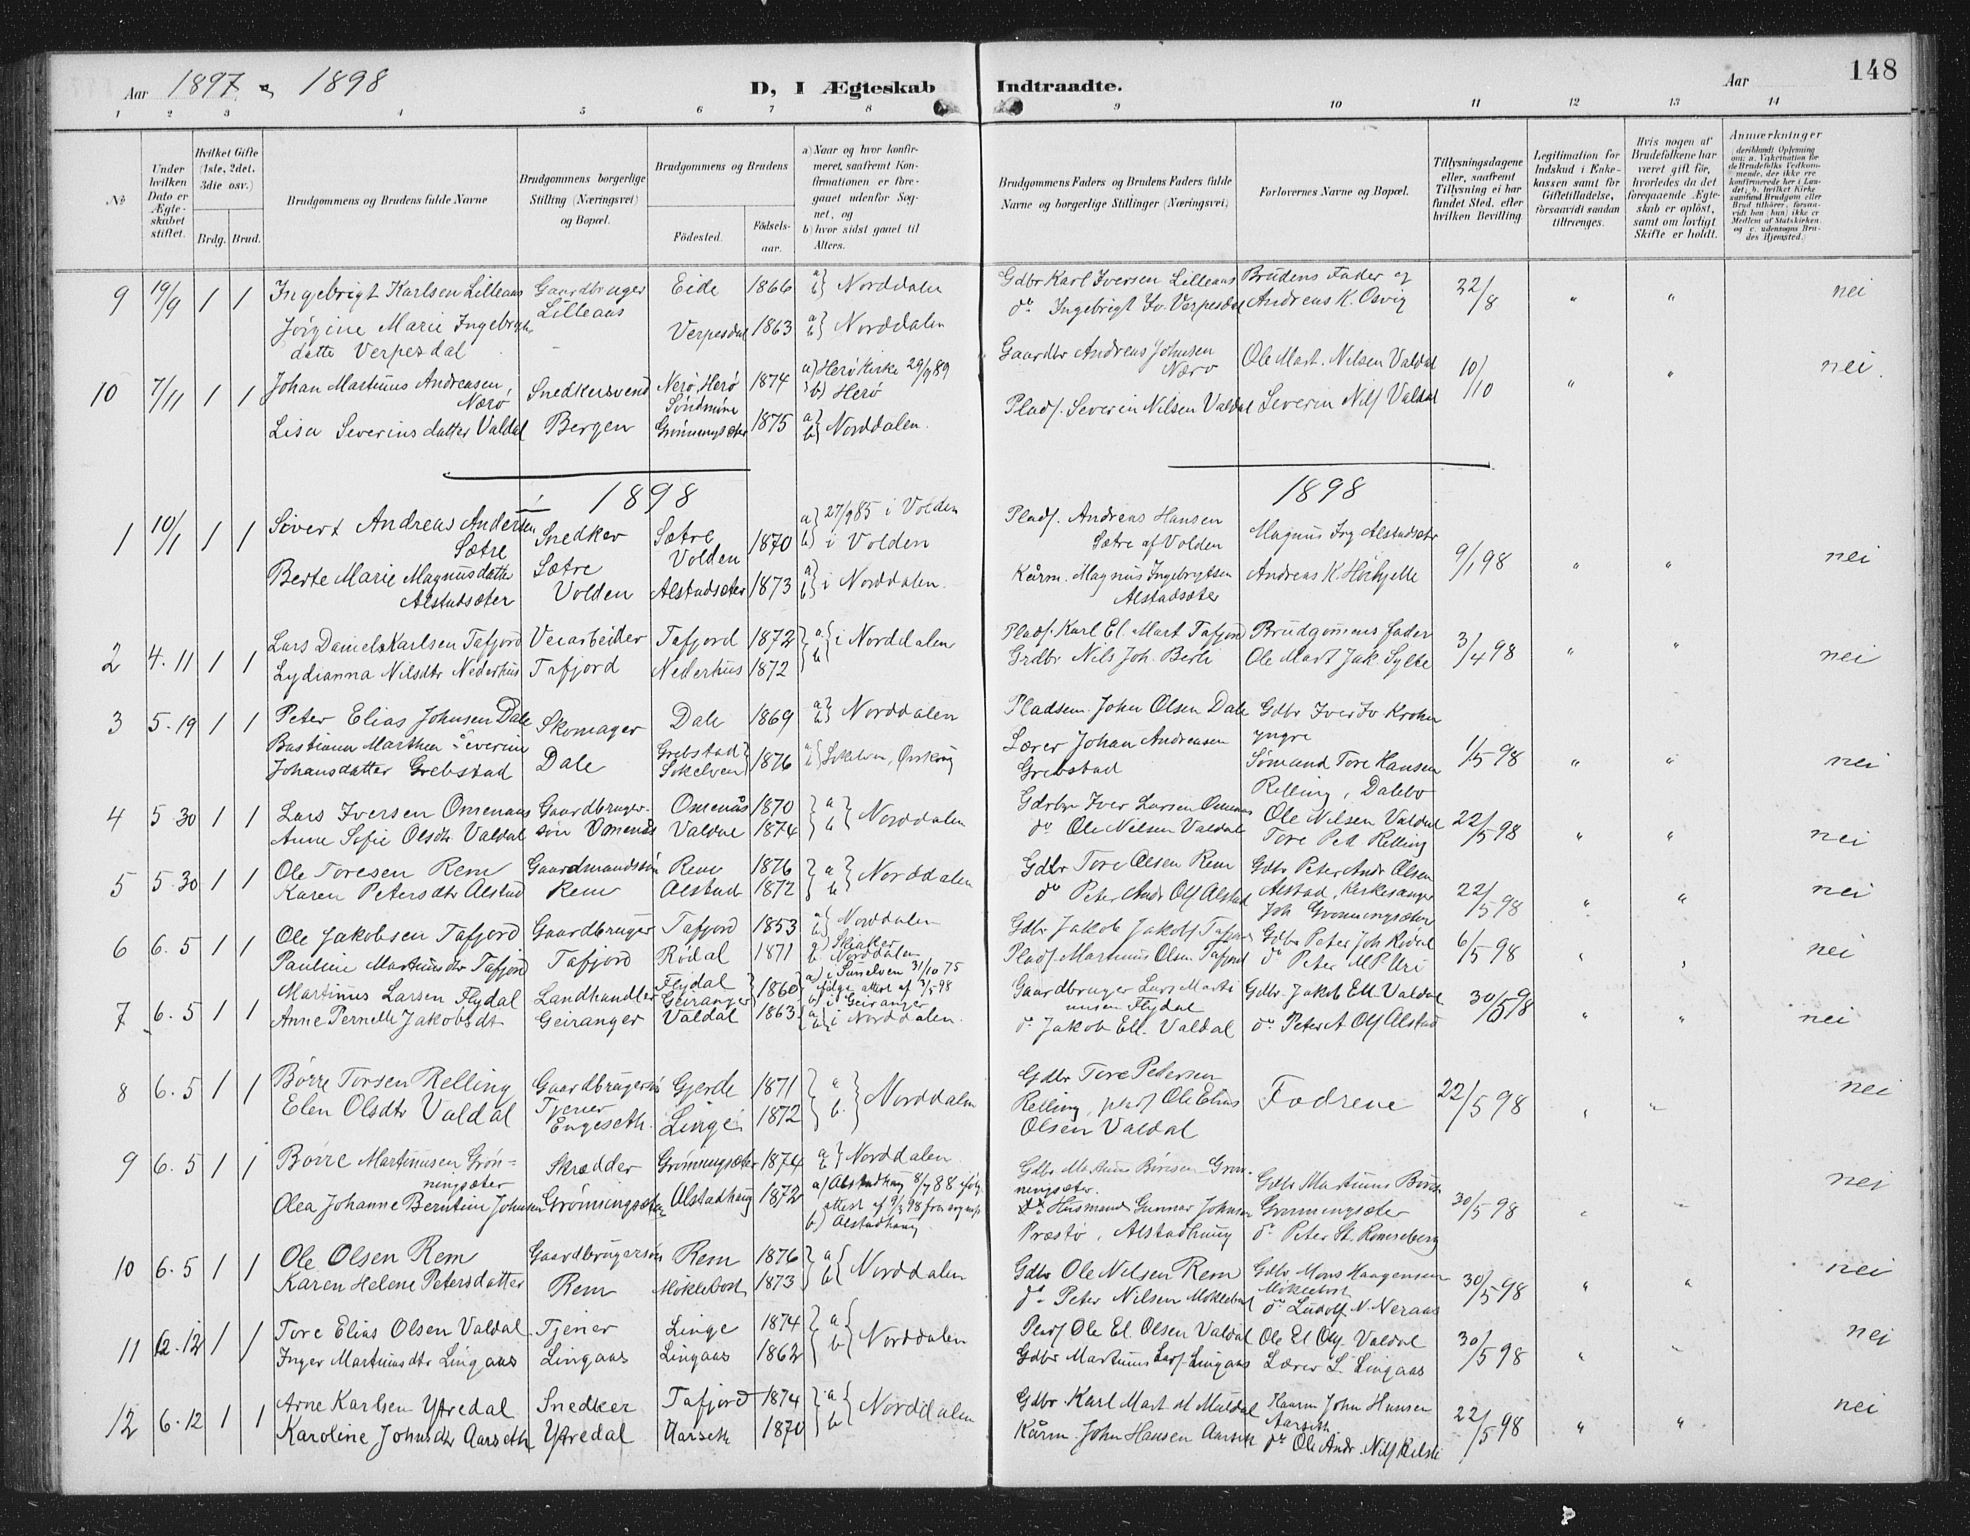 Aar 1897 & 1898
D, I Ægteskab Indtraadte.
Aar
148
1 2 3 4 5 6 7 8 9 10 11 12 13 14
No
Under hvilken Dato er Ægteskabet stiftet.
Hvilket Gifte (1ste, 2det, 3die osv.)
Brdg. Brud.
Brudgommens og Brudens fulde Navne
Brudgommens borgerlige Stilling (Næringsvei) og Bopæl.
Brudgommens og Brudens
Fødested.
Fødselsaar.
a) Naar og hvor konfirmeret, saafremt Konfirmationen er foregaaet udenfor Sognet, og
b) hvor sidst gaaet til Alters.
Brudgommens Faders og Brudens Faders fulde Navne og borgerlige Stillinger (Næringsvei)
Forlovernes Navne og Bopæl.
Tillysningsdagene eller, saafremt Tillysning ei har fundet Sted, efter hvilken Bevilling.
Legitimation for Indskud i Enkekassen samt for Giftetilladelse, forsaavidt saadan tiltrænges.
Hvis nogen af Brudefolkene har været gift før, hvorledes da det foregaaende Ægteskab er opløst, samt om lovligt Skifte er holdt.
Anmærkninger
9 19/9 1 1 Ingebrigt Karlsen Lilleaas Gaardbruger Lilleaas Eide 1866 a) b) Norddalen Gdbr Karl Iversen Lilleaas Brudens Fader og 22/8 " " nei
Jørgine Marie Ingebrigts datter Verpesdal Verpesdal 1863 a) b) Norddalen do Ingebrigt Iv. Verpesdal Andreas K. Osvig
10 7/11 1 1 Johan Martinus Andreasen, Nærø Snedkersvend Nerø, Herø Søndmøre 1874 a) Herø kirke 29/9 89 b) Herø Gaardbr Andreas Johnsen Nærø Ole Mart. Nilsen Valdal 10/10 " " nei.
Lisa Severinsdatter Valdal Bergen Grønningsæter 1875 a) b) Norddalen. Plads. Severin Nilsen Valdal Severin Nils Valdal
1898 1898
1 10/1 1 1 Sivert Andreas Andersen Sætre Snedker Sætre Volden 1870 a) 27/9 85 i Volden b) i Volden Plads. Andreas Hansen Sætre af Volden Magnus Ing Alstadsæter 9/1 98 " " nei
Berte Marie Magnusdatter Alstadsæter Sætre Volden Alstadsæter 1873 a) b) i Norddalen. Kårm. Magnus Ingebrigtsen Alstadsæter Andreas K. Hoihjelle
2 4.11 1 1 Lars Daniel Karlsen Tafjord Veiarbeider Tafjord 1872 a b i Norddalen Plads. Karl El. Mart Tafjord Brudgomens fader 3/4 98 " " nei
Lydianna Nilsdtr Nederhus Tafjord Nederhus 1872 Grdbr Nils Joh. Berli Ole Mart Jak. Sylte
3 5.19 1 1 Peter Elias Johnsen Dale Skomager Dale 1869 a) b) Norddalen Pladsem. John Olsen Dale Gdbr Iver Iv Krohn yngre 1/5 98 " " nei
Bastiana Marthea Severine Johansdatter Grebstad Dale Grebstad Søkelven 1876 Søkelven, Ørskoug Lærer Johan Andreasen Grebstad Sømand Tore Hansen Relling, Dalebo
4 5 30 1 1 Lars Iversen Omenaas Gaardbrugersøn Omenås Omenås 1870 a b Norddalen Gdrbr Iver Larsen Omenaas Ole Nilsen Valdal 22/5 98 " " nei
Anne Sofie Olsdtr Valdal Valdal 1874 do Ole Nilsen Valdal Tore Ped Relling
5 5 30 1 1 Ole Toresen Rem Gaardmandssøn Rem 1876 a b Norddalen Gdbr Tore Olsen Rem Gdbr Peter Andr Olsen Alstad, Kirkesanger 22/5 98 " " nei
Karen Petersdtr Alstad Rem Alstad 1872 do Peter Andr Ols Alstad Joh Grønningsæter
6 6.5 1 1 Ole Jakobsen Tafjord Gaardbruger Tafjord 1853 a) b) Norddalen Gdbr Jakob Jakobs Tafjord Gdbr Peter Joh Rødal 6/5 98 nei
Pauline Martinusdtr Tafjord Tafjord Rødal 1871 a) Skiaker b) Norddalen Plads. Martinus Olsen Tafjord do Peter M P. Uri
7 6.5 1 1 Martinus Larsen Flydal Landhandler Flydal Geiranger 1860 a) i Sunelven 31/10 75 ifølge attest af 3/5 98 b) i Geiranger Gaardbruger Lars Martinusen Flydal Gdbr. Jakob Ell. Valdal 30/5 98 " " nei
Anne Pernelle Jakobsdt Geiranger Valdal 1863 a) b) i Norddalen. do Jakob Ell. Valdal do Peter A Ols Alstad
8 6.5 1 1 Børre Torsen Relling Gaardbrugersøn Gjerde 1871 a b Norddalen Gdbr Tore Pedersen Relling, plads Ole Elias Olsen Valdal Fædrene 22/5 98 " " nei
Elen Olsdtr Valdal Tjener Engeseth. Linge 1872
9 6.5 1 1 Børre Martinusen Grønningsæter Skrædder Grønningsæter 1874 a) b) Norddalen Gdbr Martinus Børesen Grønningsæter. Gdbr Martinus Grønningsæter 30/5 98 nei
Olea Johanne Berntine Johnsen Grønningsæter Alstadhaug 1872 a) Alstadhaug 8/7 88 ifølg attest af 9/3 98 fra sognep b) Alstadhaug do Husmand Gunnar Johnsen Præstø, Alstadhaug do Peter St. Romseberg
10 6.5 1 1 Ole Olsen Rem Gaardbrugersøn Rem 1876 a b Norddalen Gdbr Ole Nilsen Rem Gdbr Mons Haagensen Møklebost 30/5 98 " " nei
Karen Helene Petersdatter Rem Møklebost 1873 do Peter Nilsen Møklebust do Ludolf N. Neraas
11 12.12 1 1 Tore Elias Olsen Valdal Tjener Linge 1874 a b Norddalen Plads Ole El. Olsen Valdal Ole El Ols. Valdal 30/5 98 nei
Inger Martinusdtr Lingaas Lingaas Lingaas 1862 Gdbr Martinus Lars. Lingaas Lærer L. Lingaas
12 6.12 1 1 Arne Karlsen Ytredal Snedker Tafjord 1874 a b Norddalen Gdbr. Karl Mart M Muldal Kaarm John Hansen Aarseth 22/5 98 " " nei
Karoline Johnsdtr Aarseth Ytredal Aarseth 1870 Kårm. John Hansen Aarseth do Ole Andr. Nils Relsli